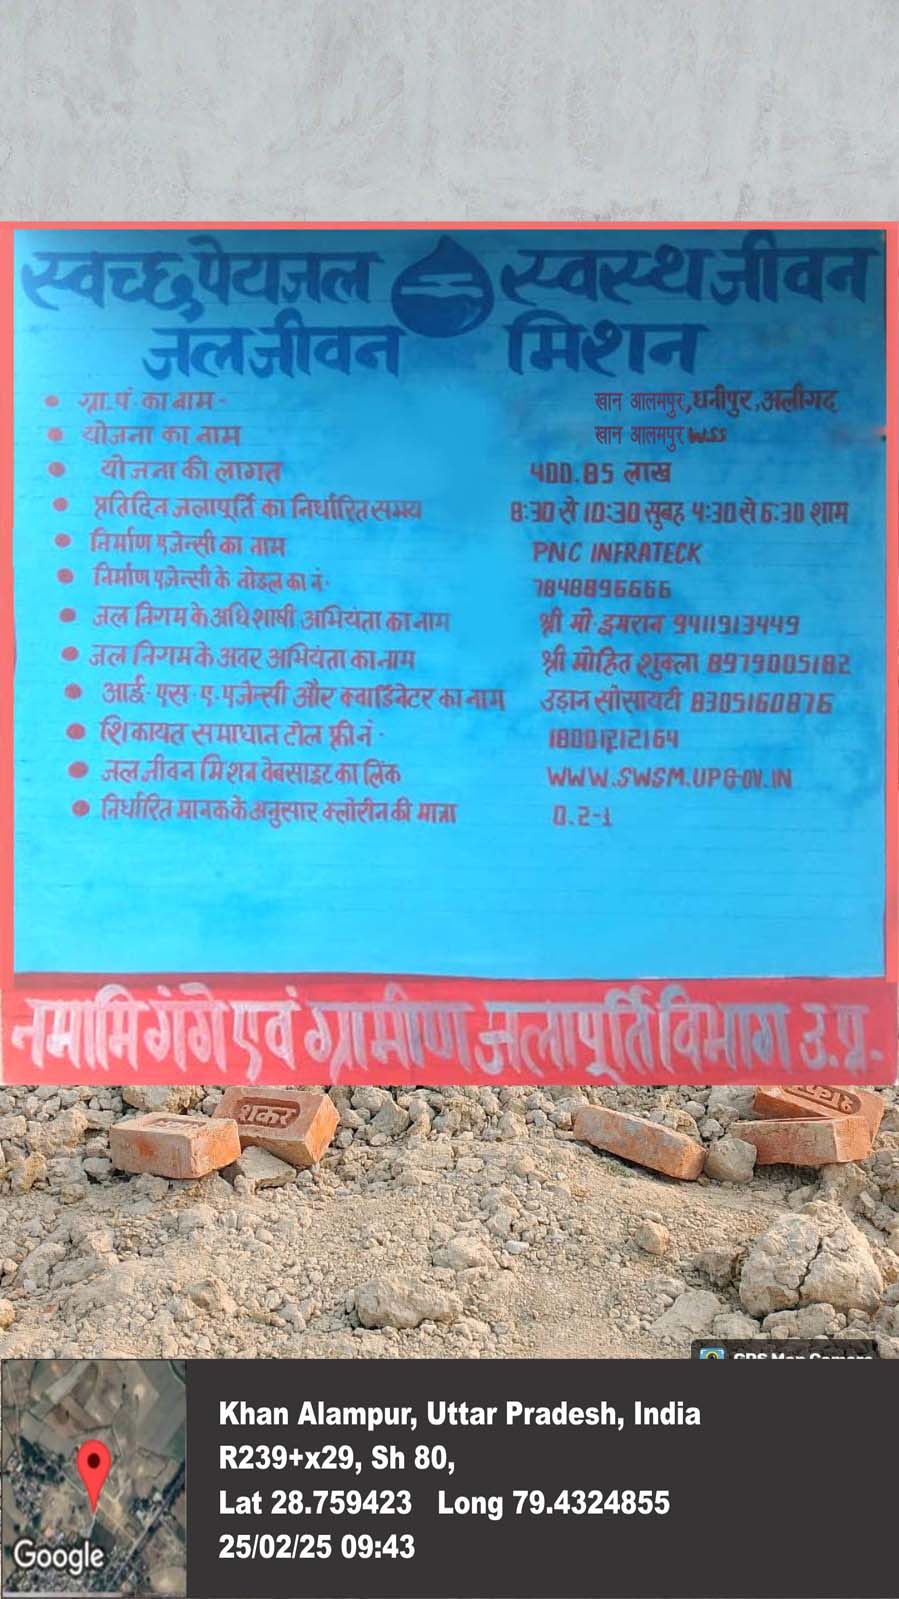 स्वच्छ पेयजल स्वस्थ जीवन
जल जीवन मिशन
ग्रा. पं. का नाम - खान आलमपुर, धनीपुर, अलीगढ
योजना का नाम खान आलमपुर W.SS
योजना की लागत 400.85 लाख
प्रतिदिन जलापूर्ति का निर्धारित समय 8:30 से 10:30 सुबह 4:30 से 6:30 शाम
निर्माण एजेन्सी का नाम PNC INFRATECK
निर्माण एजेन्सी के नोडल का नं. 7848896666
जल निगम के अधिशाषी अभियंता का नाम श्री मो. इमरान 9411913449
जल निगम के अवर अभियंता का नाम श्री मोहित शुक्ला 8979005182
आई. एस. ए. एजेन्सी और क्वार्डिनेटर का नाम उड़ान सोसायटी 8305160876
शिकायत समाधान टोल फ्री नं. 18001212164
जल जीवन मिशन वेबसाइट का लिंक WWW.SWSM.UPGOV.IN
निर्धारित मानक के अनुसार क्लोरीन की मात्रा 0.2-1
नमामि गंगे एवं ग्रामीण जलापूर्ति विभाग उ.प्र.
शंकर
GPS Map Camera
Khan Alampur, Uttar Pradesh, India
R239+x29, Sh 80,
Lat 28.759423 Long 79.4324855
25/02/25 09:43
Google